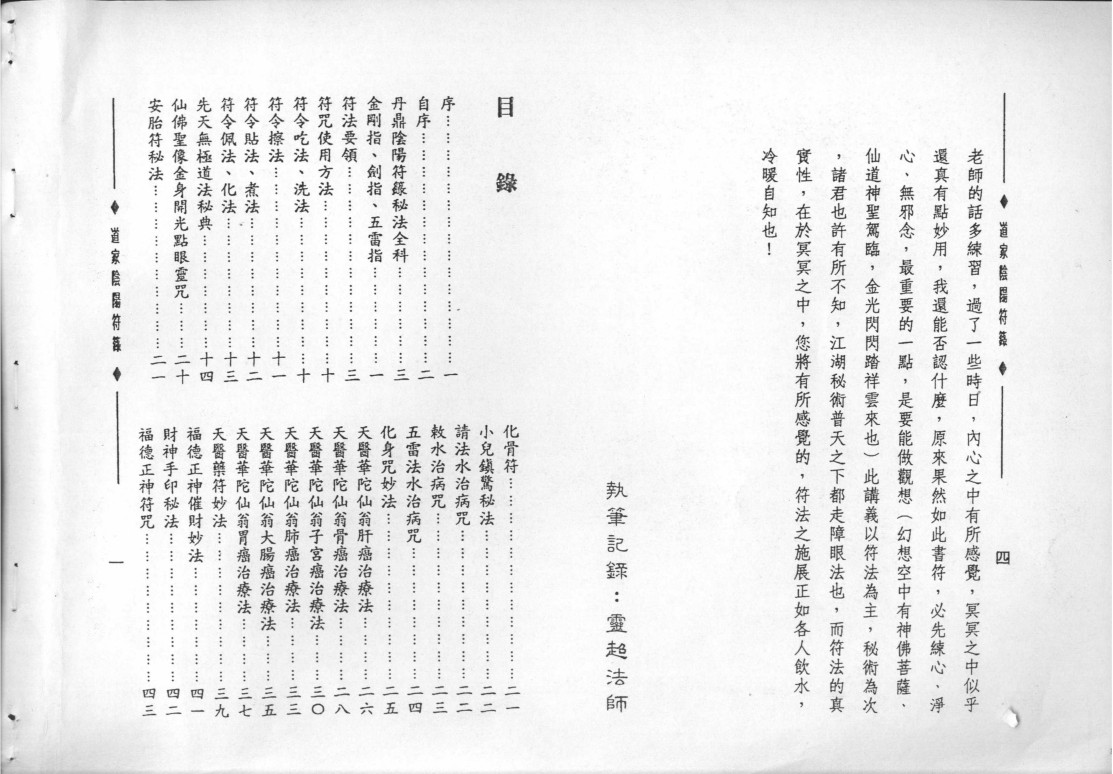 道家陰陽符籙
四
老師的話多練習，過了一些時日，內心之中有所感覺，冥冥之中似乎
還真有點妙用，我還能否認什麼，原來果然如此書符，必先練心、淨
心、無邪念，最重要的一點，是要能做觀想（幻想空中有神佛菩薩、
仙道神聖駕臨，金光閃閃踏祥雲來也）此講義以符法為主，秘術為次
，諸君也許有所不知，江湖秘術普天之下都走障眼法也，而符法的真
實性，在於冥冥之中，您將有所感覺的，符法之施展正如各人飲水，
冷暖自知也！
執筆記錄：靈超法師
目錄
序……………………一
自序……………………二
丹鼎陰陽符籙秘法全科……………………三
金剛指、劍指、五雷指……………………一
符法要領……………………三
符咒使用方法……………………十
符令吃法、洗法……………………十
符令擦法……………………十一
符令貼法、煮法……………………十二
符令佩法、化法……………………十三
先天無極道法秘典……………………十四
仙佛聖像金身開光點眼靈咒……………………二十
安胎符秘法……………………二一
化骨符……………………二一
小兒鎮驚秘法……………………二二
請法水治病咒……………………二二
敕水治病咒……………………二三
五雷法水治病咒……………………二四
化身咒妙法……………………二五
天醫華陀仙翁肝癌治療法……………………二六
天醫華陀仙翁骨癌治療法……………………二八
天醫華陀仙翁子宮癌治療法……………………三〇
天醫華陀仙翁肺癌治療法……………………三三
天醫華陀仙翁大腸癌治療法……………………三五
天醫華陀仙翁胃癌治療法……………………三七
天醫藥符妙法……………………三九
福德正神催財妙法……………………四一
財神手印秘法……………………四二
福德正神符咒……………………四三
道家陰陽符籙
一